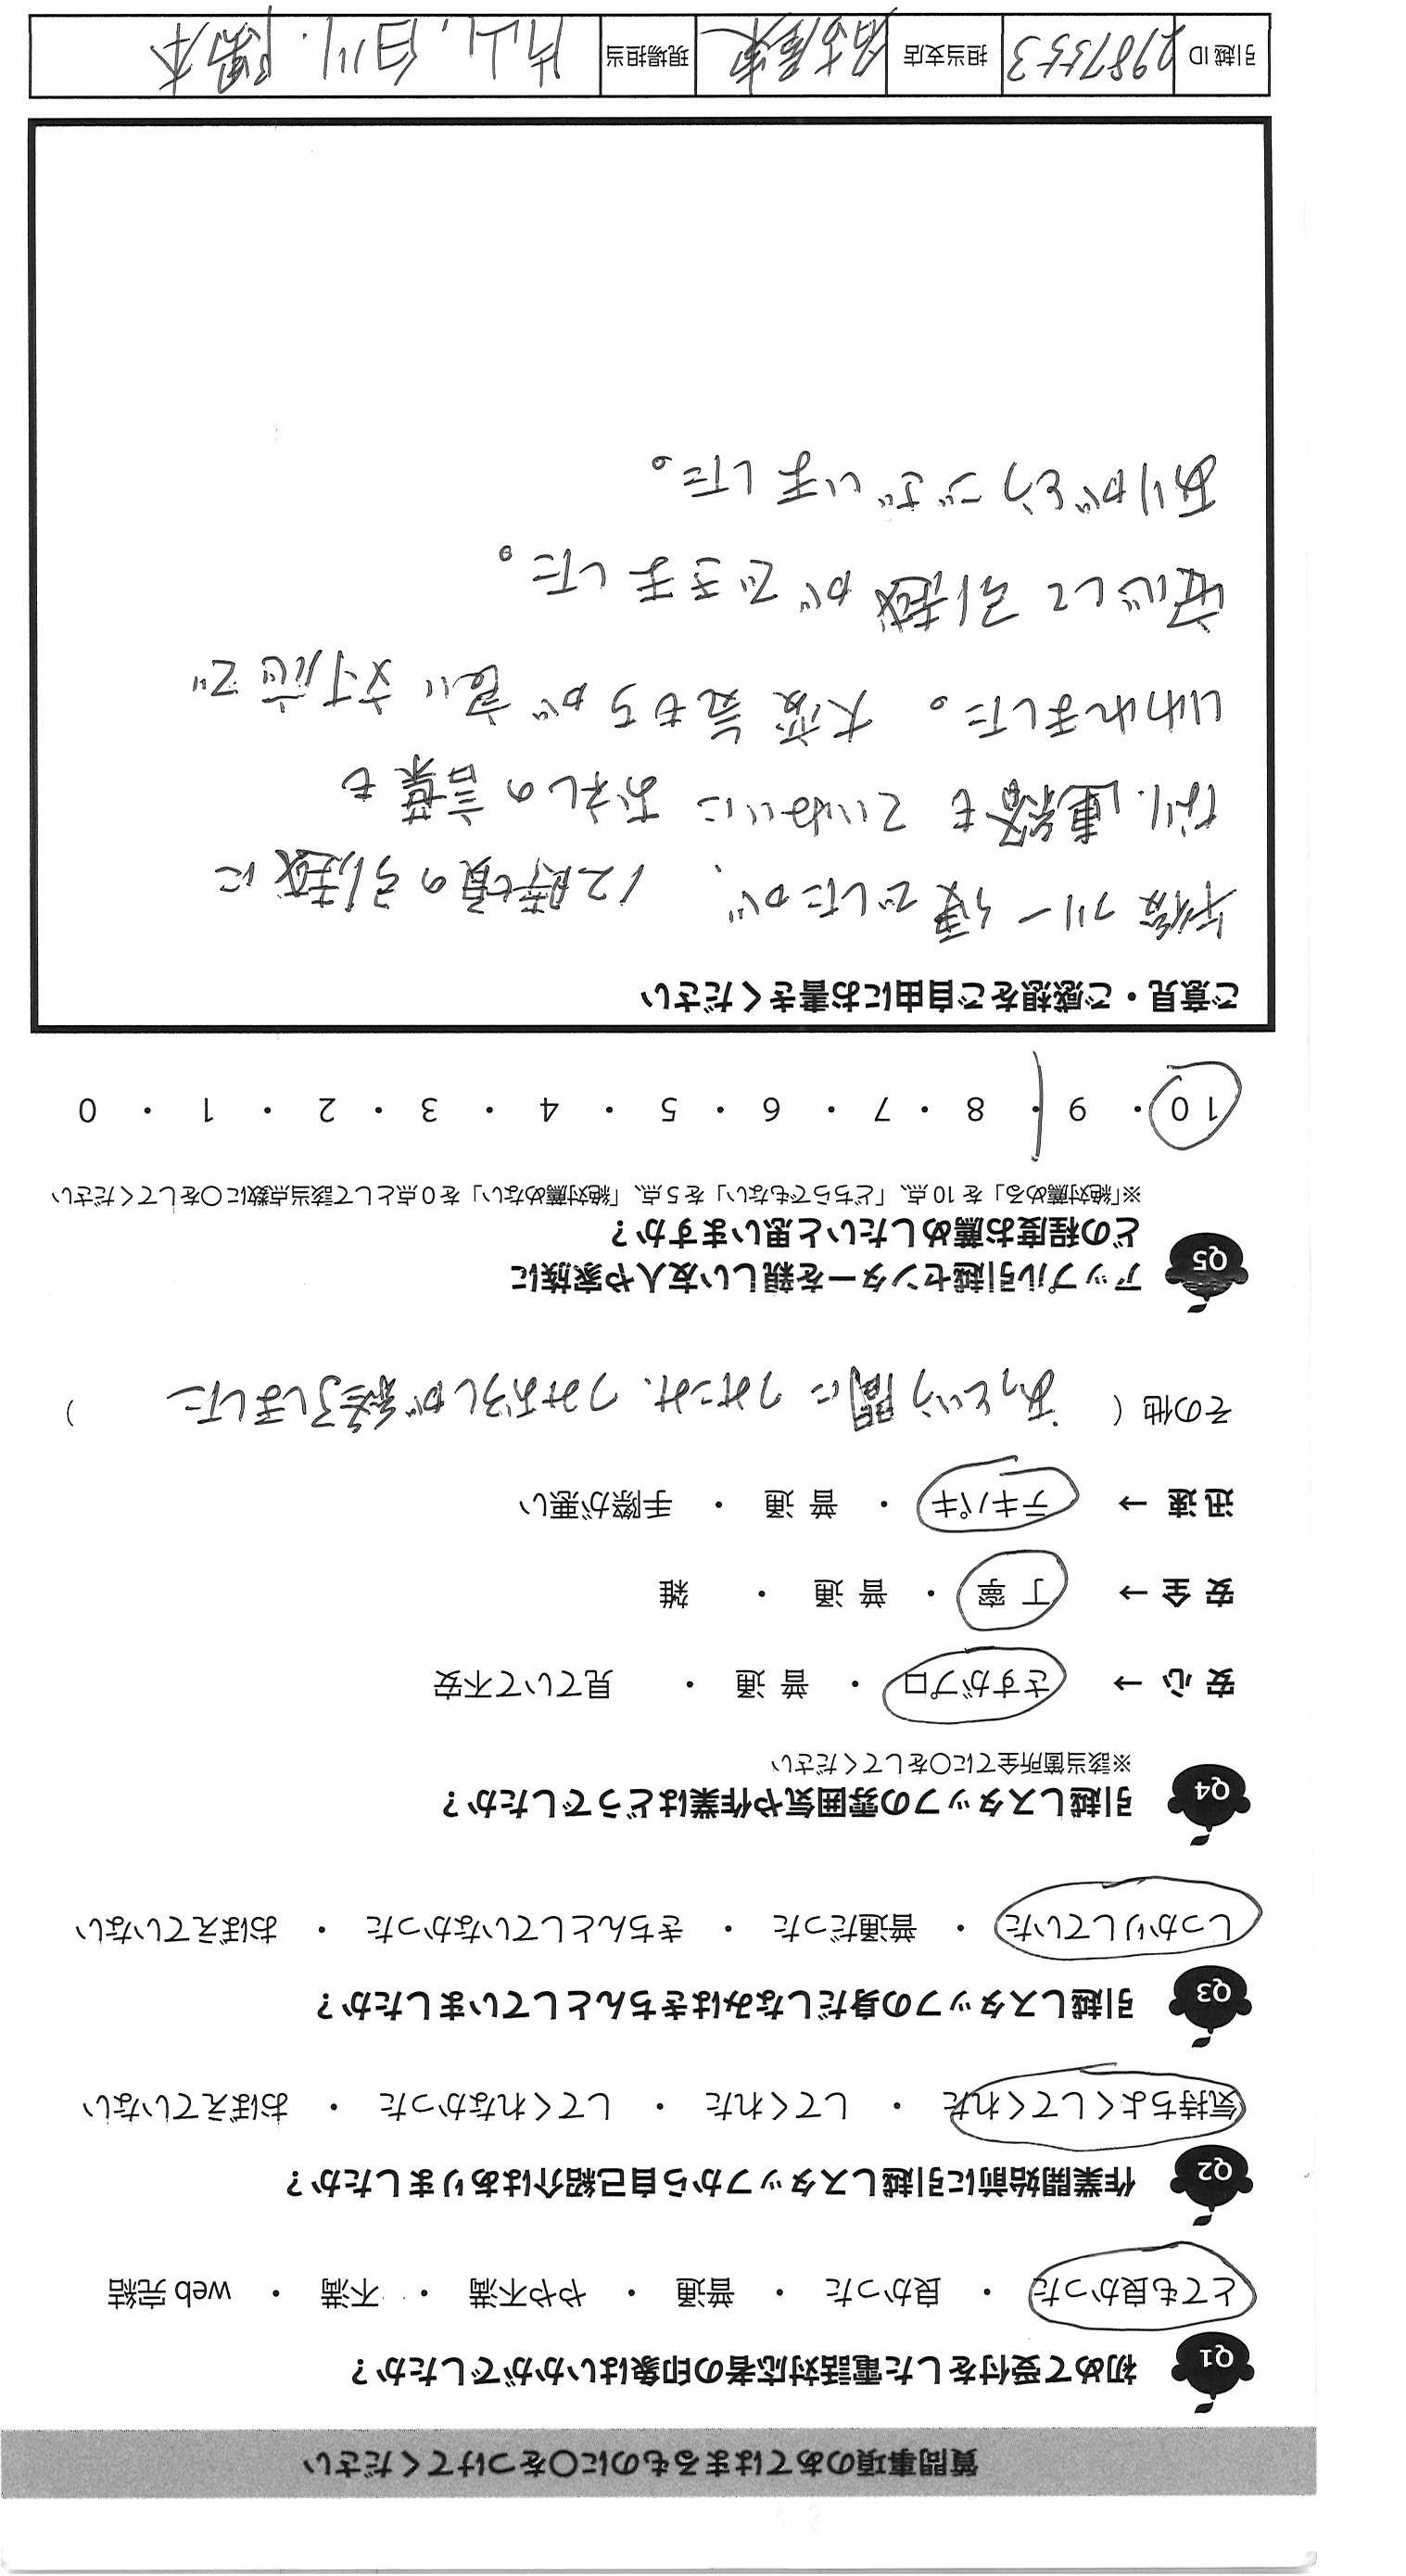 質問事項のあてはまるものに○をつけてください
Q1 初めて受付をした電話対応者の印象はいかがでしたか？
とても良かった ・ 良かった ・ 普通 ・ やや不満 ・ 不満 ・ web 完結
Q2 作業開始前に引越しスタッフから自己紹介はありましたか？
気持ちよくしてくれた ・ してくれた ・ してくれなかった ・ おぼえていない
Q3 引越しスタッフの身だしなみはきちんとしていましたか？
しっかりしていた ・ 普通だった ・ きちんとしていなかった ・ おぼえていない
Q4 引越しスタッフの雰囲気や作業はどうでしたか？
※該当箇所全てに○をしてください
安 心 → さすがプロ ・ 普 通 ・ 見ていて不安
安 全 → 丁 寧 ・ 普 通 ・ 雑
迅 速 → テキパキ ・ 普 通 ・ 手際が悪い
その他 ( あっという間に つみこみ、つみおろしが終了しました )
Q5 アップル引越センターを親しい友人や家族に
どの程度お薦めしたいと思いますか？
※「絶対薦める」を 10 点、「どちらでもない」を 5 点、「絶対薦めない」を 0 点として該当点数に○をしてください
10 ・ 9 ・ 8 ・ 7 ・ 6 ・ 5 ・ 4 ・ 3 ・ 2 ・ 1 ・ 0
ご意見・ご感想をご自由にお書きください
午後フリー便でしたが、12時頃の引越に
なり、連絡も ていねいに お礼の言葉も
いわれました。 大変気もちが良い 対応で
安心して引越ができました。
ありがとうございました。
引越 ID 担当支店 名古屋東 現場担当 片山、白川、